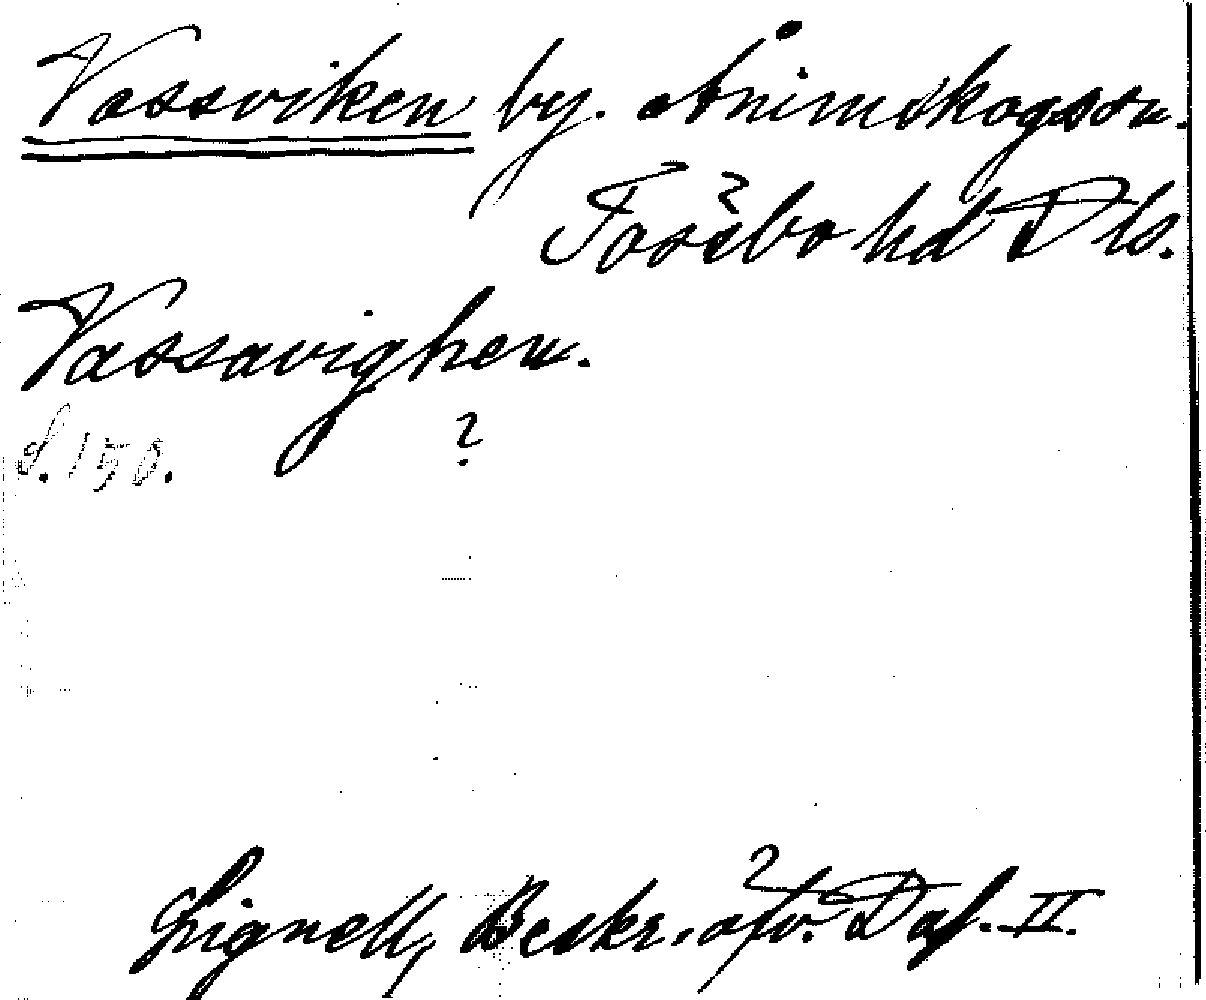 Vassviken by. Ånimskogs sn.
Tössbo hd Dls.
Vassavighen.
S. 150. ?
Lignell, Beskr. öfv. Dal. II.